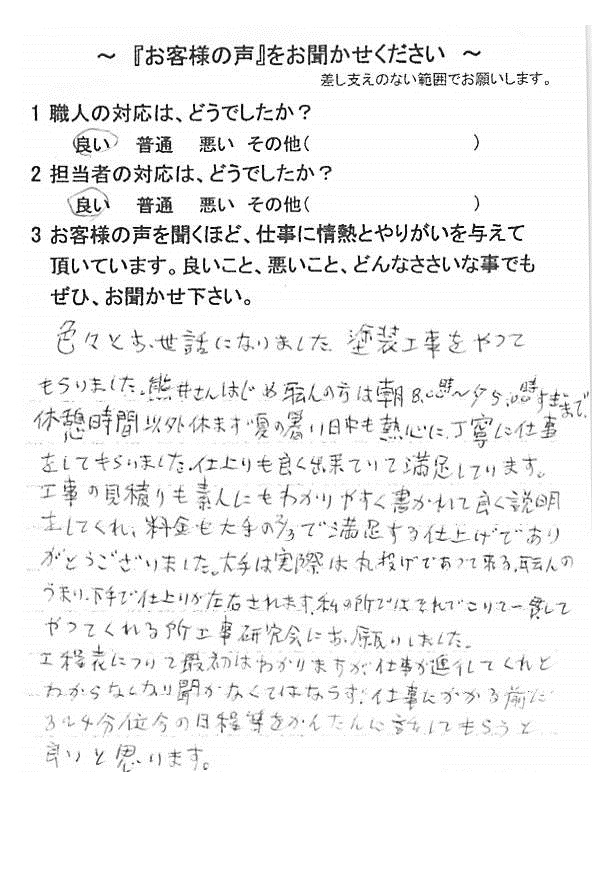 ～ 『お客様の声』をお聞かせください ～
差し支えのない範囲でお願いします。
1 職人の対応は、どうでしたか？
良い 普通 悪い その他( )
2 担当者の対応は、どうでしたか？
良い 普通 悪い その他( )
3 お客様の声を聞くほど、仕事に情熱とやりがいを与えて
頂いています。良いこと、悪いこと、どんなささいな事でも
ぜひ、お聞かせ下さい。
色々とお世話になりました。塗装工事をやって
もらいました。熊井さんはじめ職人の方は朝8.00時～夕5.00時すぎまで、
休憩時間以外休まず夏の暑い日中も熱心に、丁寧に仕事
をしてもらいました。仕上りも良く出来ていて満足しています。
工事の見積りも素人にもわかりやすく書かれて良く説明
をしてくれ、料金も大手の2/3で満足する仕上げであり
がとうございました。大手は実際は丸投げであって来る、職人の
うまい、下手で仕上りが左右されます。私の所ではそれでこりて一貫して
やってくれる所工事研究会にお願いしました。
工程表について最初はわかりますが、仕事が進行してくれと
わからなくなり聞かなくてはならず、仕事にかかる前に
3〜4分位今の日程等をかんたんに話してもらうと
良いと思います。